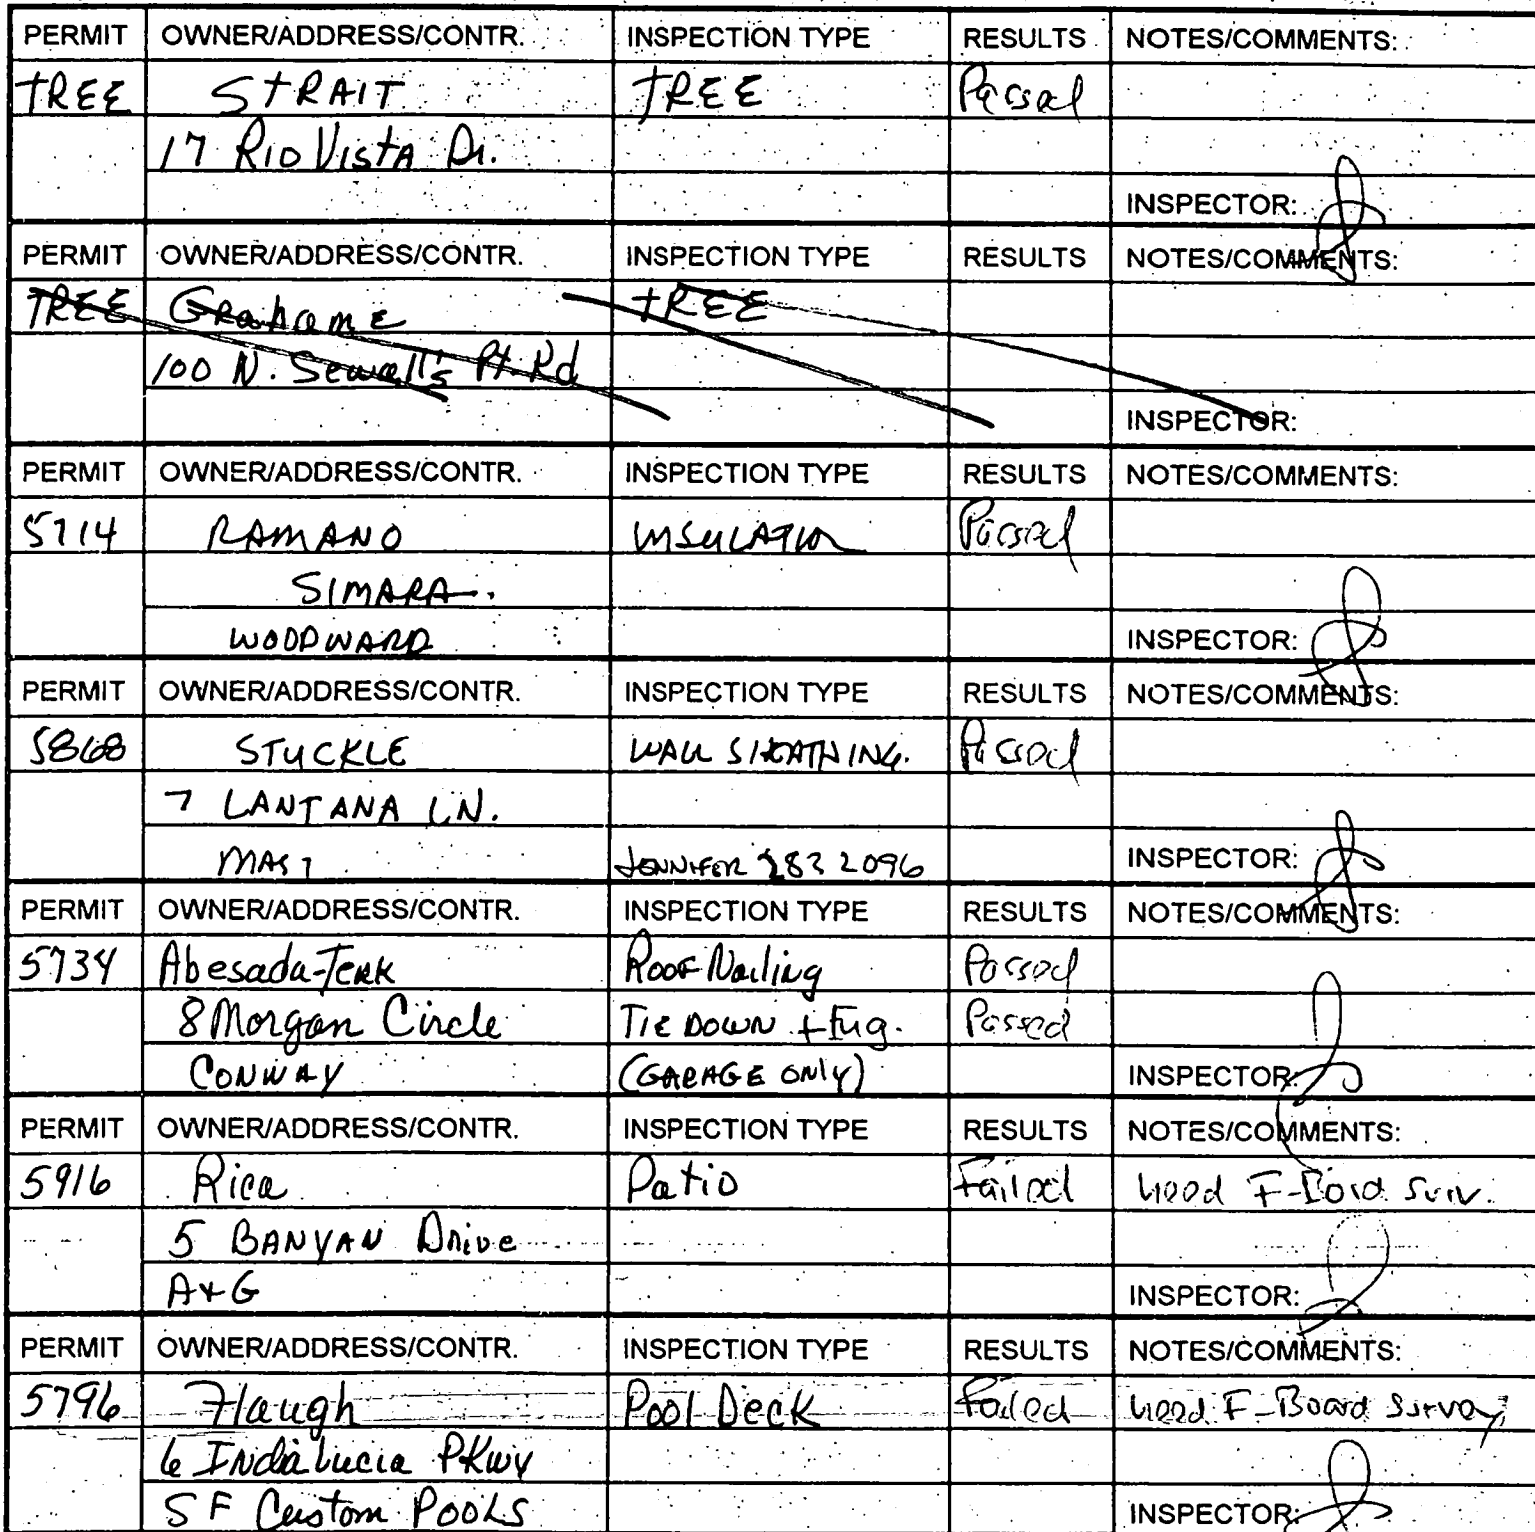 PERMIT OWNER/ADDRESS/CONTR. INSPECTION TYPE RESULTS NOTES/COMMENTS:
TREE STRAIT TREE Passed
17 Rio Vista Dr.
INSPECTOR:
PERMIT OWNER/ADDRESS/CONTR. INSPECTION TYPE RESULTS NOTES/COMMENTS:
TREE Grahame TREE
100 N. Sewall's Pt. Rd
INSPECTOR:
PERMIT OWNER/ADDRESS/CONTR. INSPECTION TYPE RESULTS NOTES/COMMENTS:
5714 RAMANO INSULATION Passed
SIMARA
WOODWARD INSPECTOR:
PERMIT OWNER/ADDRESS/CONTR. INSPECTION TYPE RESULTS NOTES/COMMENTS:
5868 STUCKLE WALL SHEATHING. Passed
7 LANTANA LN.
JENNIFER 283 2096 INSPECTOR:
PERMIT OWNER/ADDRESS/CONTR. INSPECTION TYPE RESULTS NOTES/COMMENTS:
5734 Abesada-Terk Roof Nailing Passed
8 Morgan Circle TIE DOWN + Eng. Passed
CONWAY (GARAGE ONLY) INSPECTOR:
PERMIT OWNER/ADDRESS/CONTR. INSPECTION TYPE RESULTS NOTES/COMMENTS:
5916 Rica Patio Failed need F-Bord Surv.
5 BANYAN Drive
A+G INSPECTOR:
PERMIT OWNER/ADDRESS/CONTR. INSPECTION TYPE RESULTS NOTES/COMMENTS:
5796 Haugh Pool Deck Failed need F-Board Survey
6 Indialucie PKwy
SF Custom POOLS INSPECTOR: